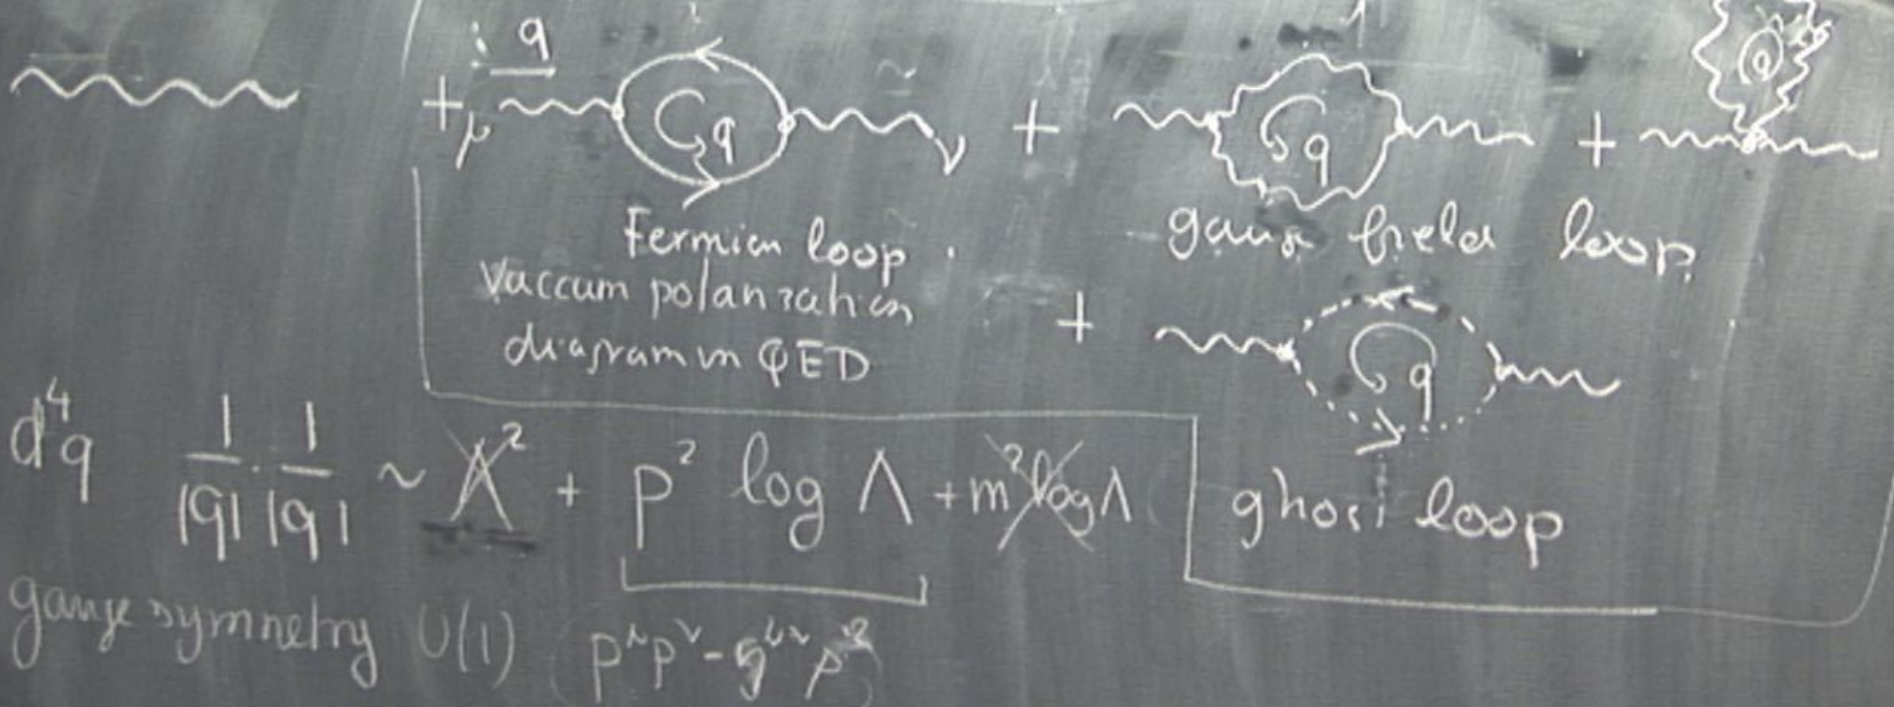 q
+ μ ν + +
q q q
Fermion loop
vaccum polarization
diagram in QED
gauge field loop
+ q
ghost loop
d⁴q 1/|q| · 1/|q| ~ Λ² + p² log Λ + m² log Λ
gauge symmetry U(1) (p^μ p^ν - g^μν p²)